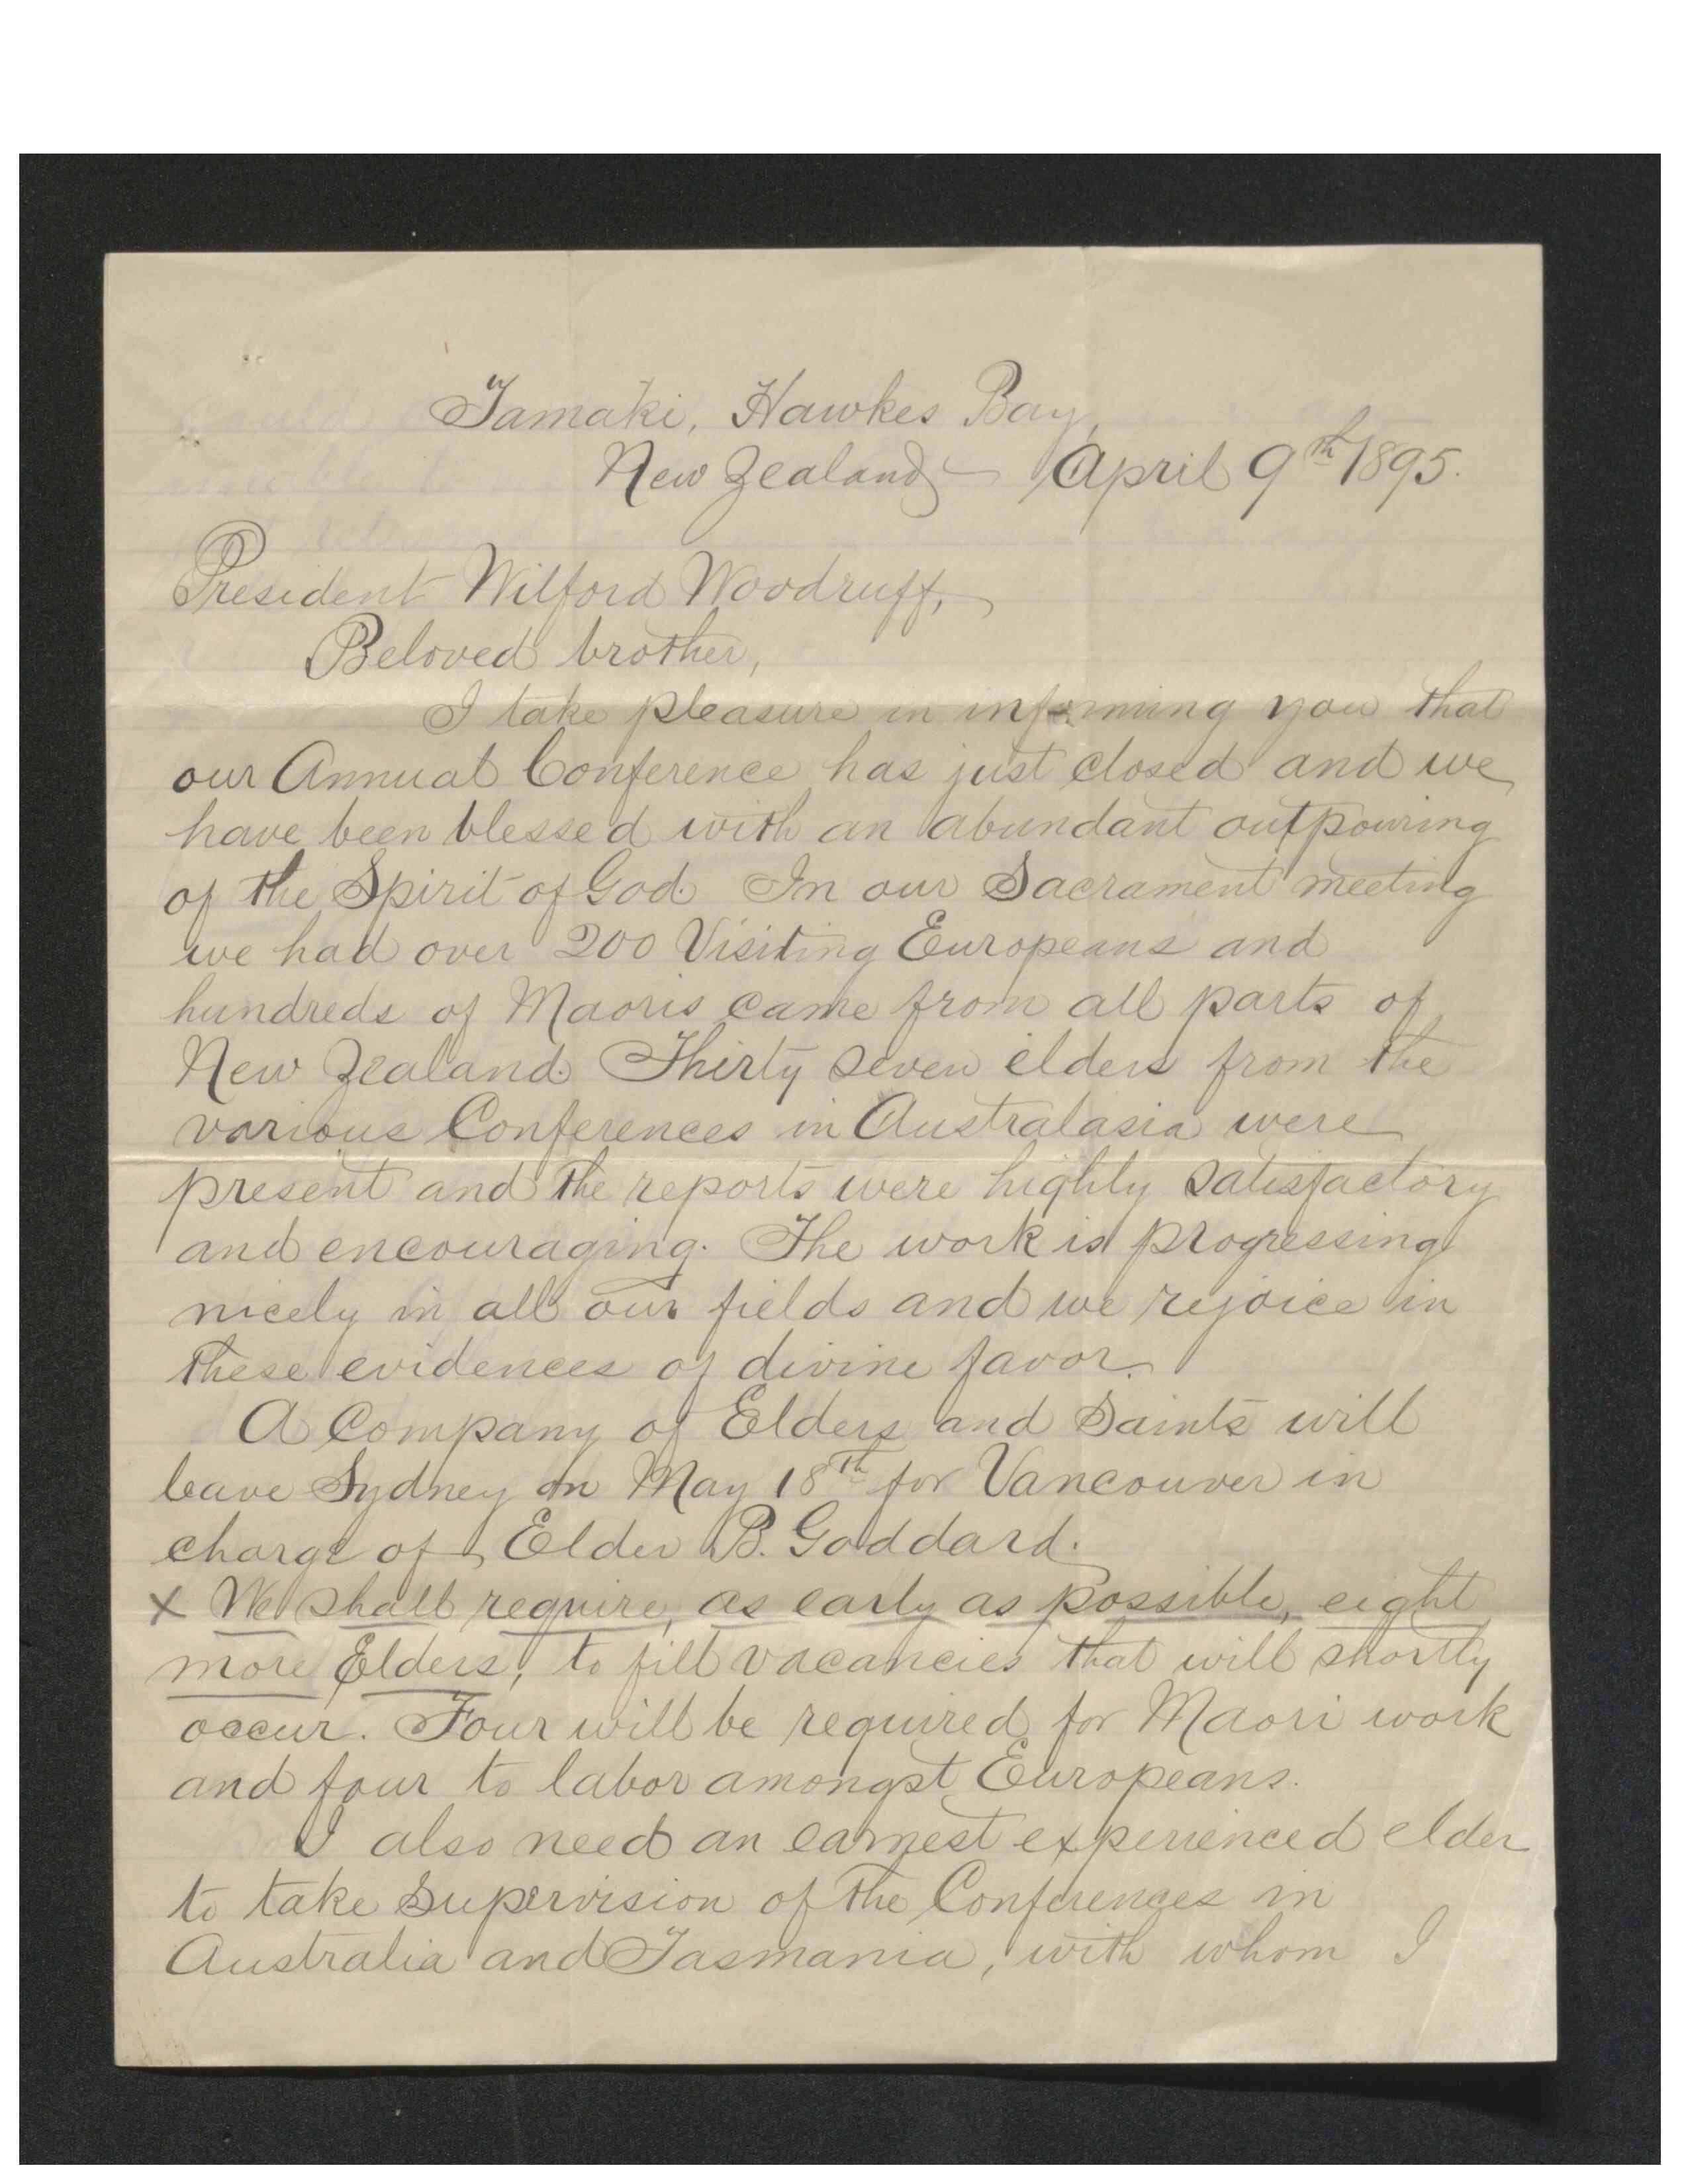 Tamaki, Hawkes Bay,
New Zealand, April 9th 1895.
President Wilford Woodruff,
Beloved brother,
I take pleasure in informing you that
our Annual Conference has just closed and we
have been blessed with an abundant outpouring
of the Spirit of God. In our Sacrament meeting
we had over 200 Visiting Europeans and
hundreds of Maoris came from all parts of
New Zealand. Thirty seven elders from the
various Conferences in Australasia were
present and the reports were highly satisfactory
and encouraging. The work is progressing
nicely in all our fields and we rejoice in
these evidences of divine favor.
A Company of Elders and Saints will
leave Sydney on May 18th for Vancouver in
charge of Elder B. Goddard.
x We shall require, as early as possible, eight
more Elders, to fill vacancies that will shortly
occur. Four will be required for Maori work
and four to labor amongst Europeans.
I also need an earnest experienced elder
to take supervision of the Conferences in
Australia and Tasmania, with whom I